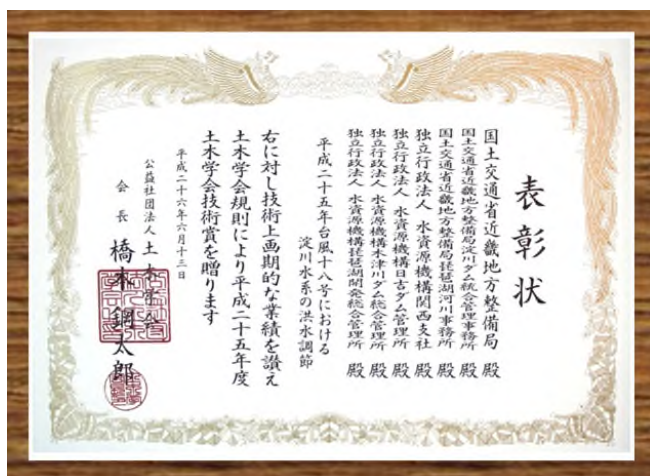 表彰状
国土交通省近畿地方整備局 殿
国土交通省近畿地方整備局淀川ダム統合管理事務所 殿
国土交通省近畿地方整備局琵琶湖河川事務所 殿
独立行政法人 水資源機構関西支社 殿
独立行政法人 水資源機構日吉ダム管理所 殿
独立行政法人 水資源機構木津川ダム総合管理所 殿
独立行政法人 水資源機構琵琶湖開発総合管理所 殿
平成二十五年台風十八号における
淀川水系の洪水調節
右に対し技術上画期的な業績を讃え
土木学会規則により平成二十五年度
土木学会技術賞を贈ります
平成二十六年六月十三日
公益社団法人 土木学会
会長 橋本鋼太郎